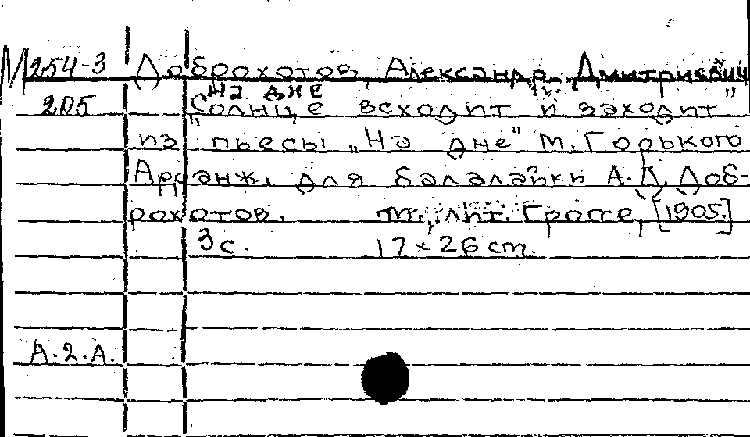 М 254-3 Доброхотов, Александр Дмитриевич
На дне
205 "Солнце всходит и заходит"
из пьесы „На дне" М. Горького
Арранж. для балалайки А.Д. Доб-
рохотов. М., лит. Гроссе, [1905.]
3 с. 17 × 26 cm
А.2.А.